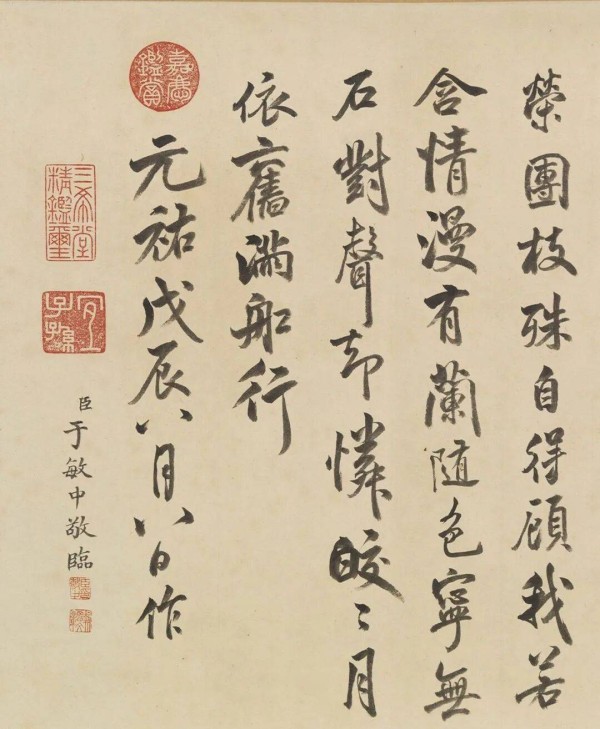 榮團枝殊自得顧我若
含情漫有蘭隨色寧無
石對聲却憐皎〻月
依舊滿船行
元祐戊辰八月八日作
臣于敏中敬臨
嘉慶鑑賞
三希堂精鑑璽
宜子孫